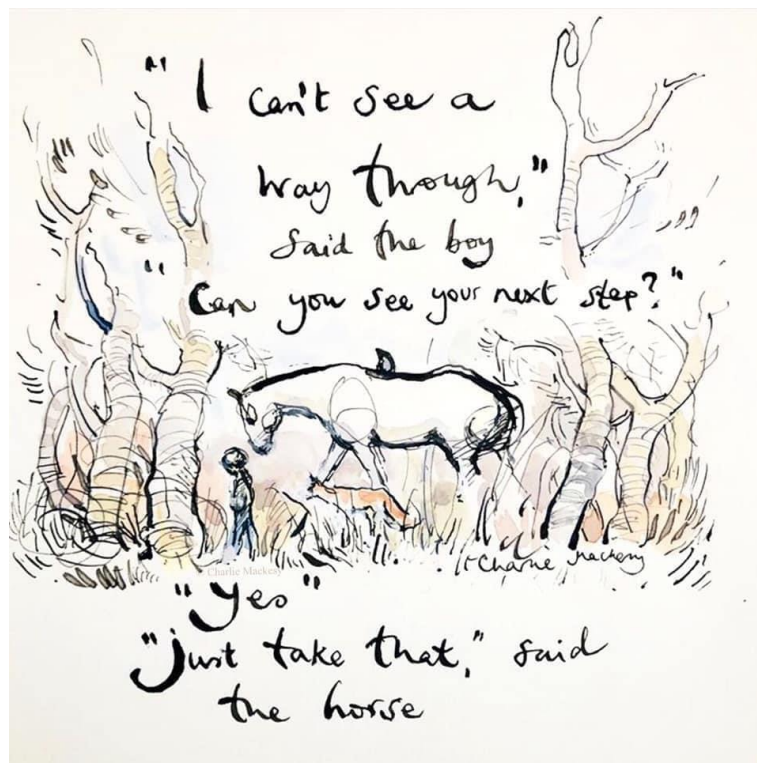 "I can't see a
way through,"
said the boy
"Can you see your next step?"
© Charlie Mackesy
Charlie Mackesy
"Yes"
"just take that," said
the horse